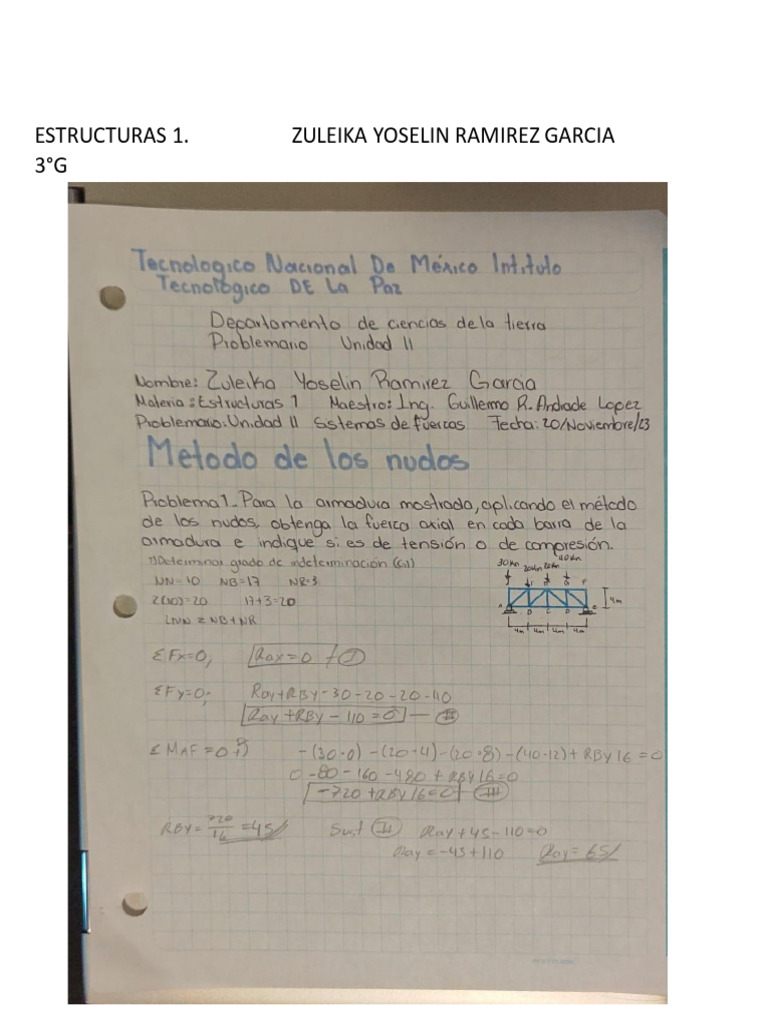 ESTRUCTURAS 1. ZULEIKA YOSELIN RAMIREZ GARCIA
3°G
Tecnologico Nacional De México Intituto
Tecnologico DE La Paz
Departamento de ciencias de la tierra
Problemario Unidad II
Nombre: Zuleika Yoselin Ramirez Garcia
Materia: Estructuras 1 Maestro: Ing. Guillermo R. Andrade Lopez
Problemario: Unidad II Sistemas de fuercas Fecha: 20/Noviembre/23
Metodo de los nudos
Problema 1.- Para la armadura mostrada, aplicando el método
de los nudos, obtenga la fuerca axial en cada barra de la
armadura e indique si es de tensión o de compresión.
1) Determinar grado de indeterminación (GI)
NN=10 NB=17 NR=3
2(10)=20 17+3=20
2NN = NB+NR
30kn 20kn 20kn 40kn
4m
4m 4m 4m 4m
ΣFx=0; Rax=0 I
ΣFy=0; Ray+RBy-30-20-20-40
Ray+RBy-110=0 - II
ΣMAF=0 -(30·0)-(20·4)-(20·8)-(40·12)+RBy16=0
0-80-160-480+RBy16=0
-720+RBy16=0 III
RBy=720/16=45 Sust II Ray+45-110=0
Ray=-45+110 Ray=65